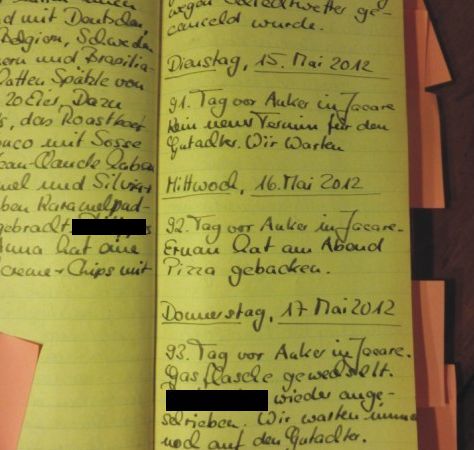 nd mit Deutschen,
Belgien, Schweden
ern und Brasilia-
hatten Spätzle von
20 Eier. Dazu
s, das Roastbeef
mit Sosse
ean-Claude haben
mel und Silvia
ben Karamelpud-
gebracht.
Anna hat eine
creme + Chips mit
wegen Schlechtwetter ge-
canceld wurde.
Dienstag, 15. Mai 2012
91. Tag vor Anker in Jacare
Kein neuer Termin für den
Gutachter. Wir warten
Mittwoch, 16. Mai 2012
92. Tag vor Anker in Jacare.
Erwan hat am Abend
Pizza gebacken.
Donnerstag, 17 Mai 2012
93. Tag vor Anker in Jacare.
Gasflasche gewechselt.
wieder ange-
schrieben. Wir warten immer
noch auf den Gutachter.